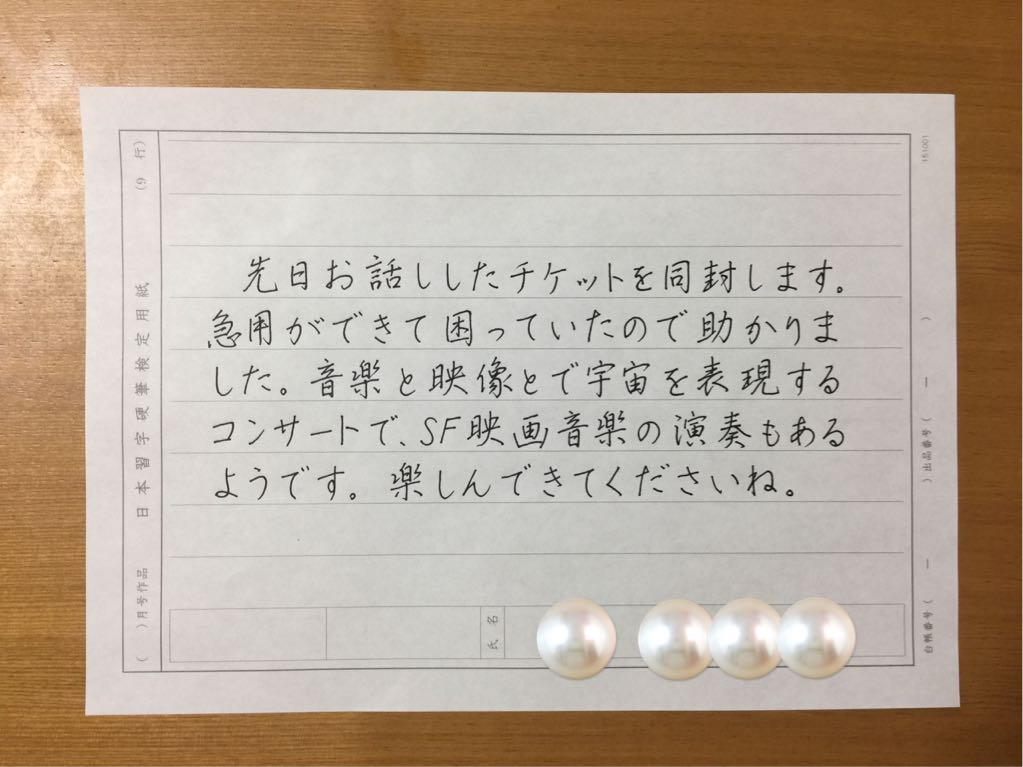 先日お話ししたチケットを同封します。
急用ができて困っていたので助かりま
した。音楽と映像とで宇宙を表現する
コンサートで、SF映画音楽の演奏もある
ようです。楽しんできてくださいね。
氏名
(　)月号作品　日本習字硬筆検定用紙　(9行)
151001
台帳番号(　ー　)出品番号(　ー　)